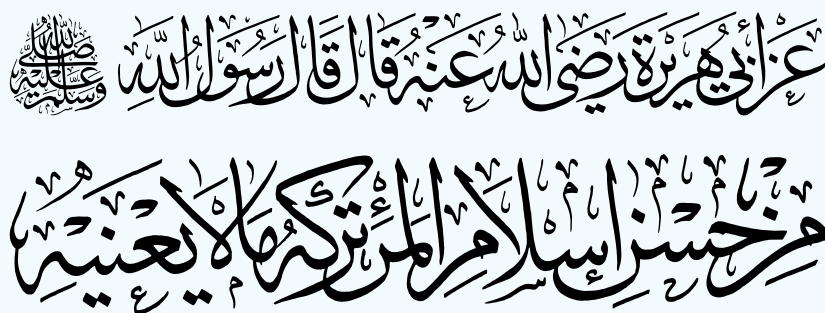 عَنْ أَبِي هُرَيْرَةَ رَضِيَ اللهُ عَنْهُ قَالَ قَالَ رَسُولُ اللهِ صَلَّى اللهُ عَلَيْهِ وَسَلَّمَ
مِنْ حُسْنِ إِسْلَامِ الْمَرْءِ تَرْكُهُ مَا لَا يَعْنِيهِ